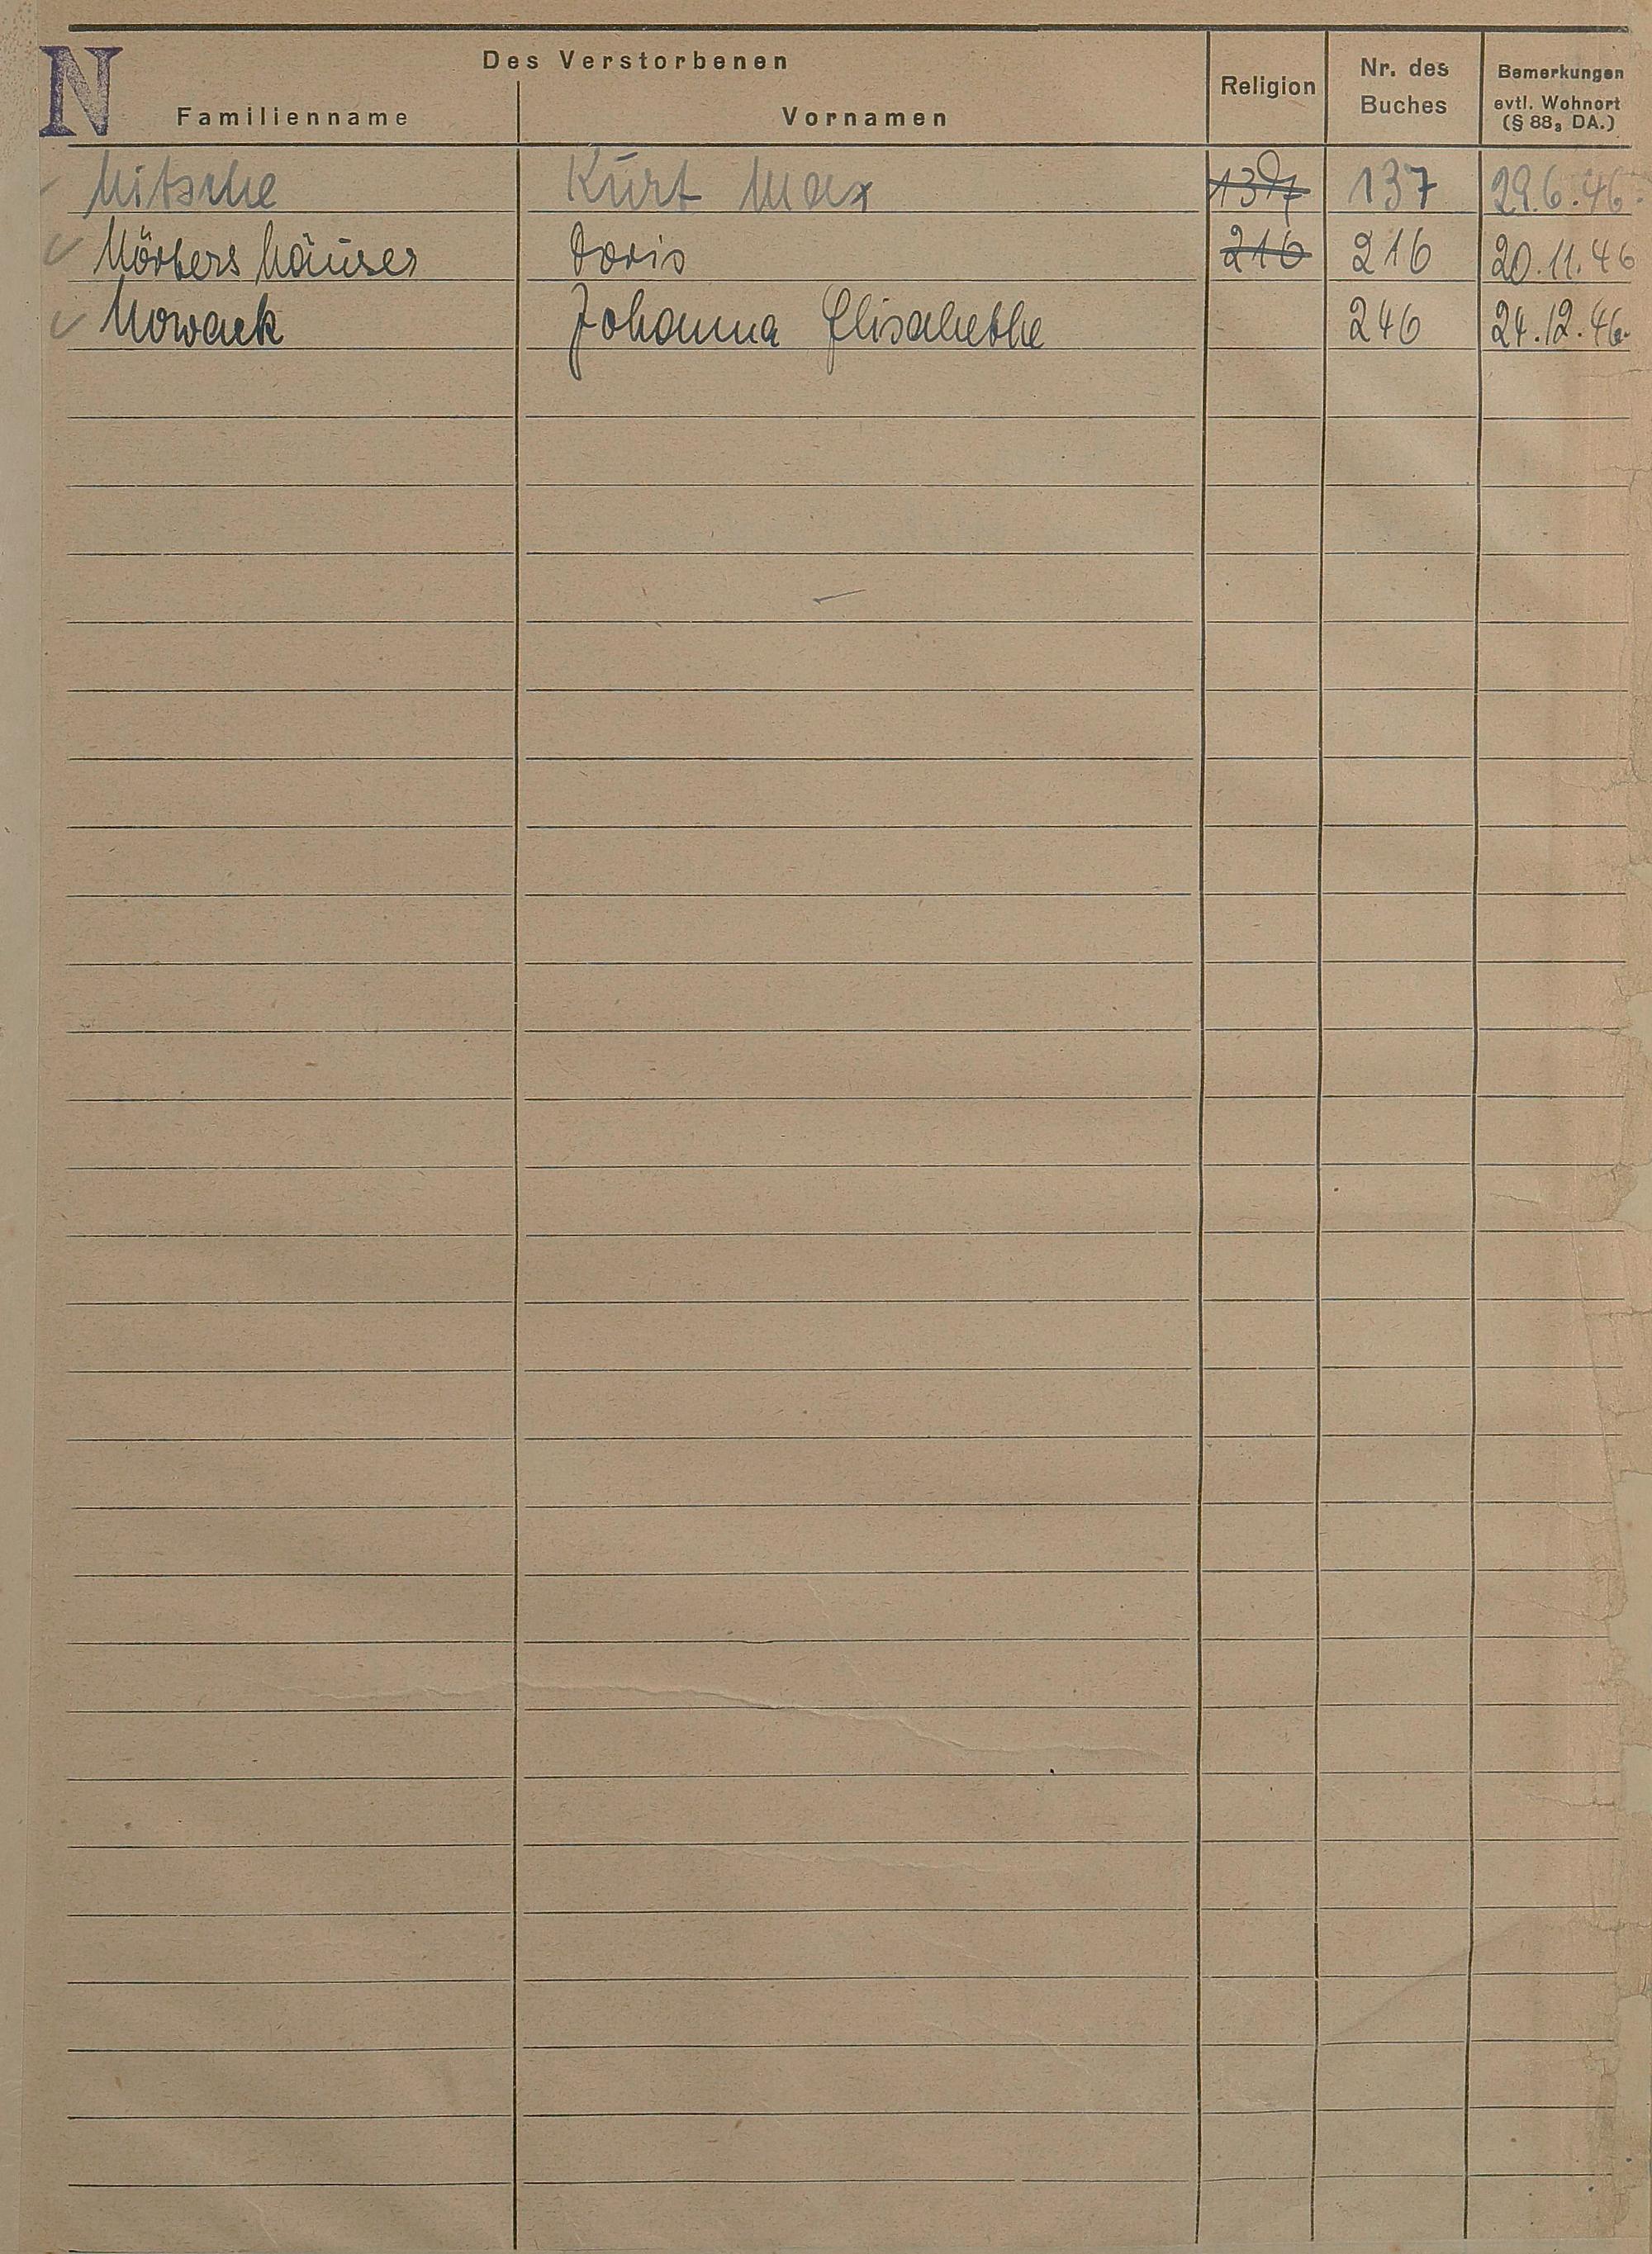 N
Des Verstorbenen
Familienname Vornamen Religion Nr. des Buches Bemerkungen evtl. Wohnort (§ 88, DA.)
Nitsche Kurt Max 137 137 29.6.46.
Nörbershäuser Doris 216 216 20.11.46
Nowack Johanna Elisabethe 246 24.12.46.